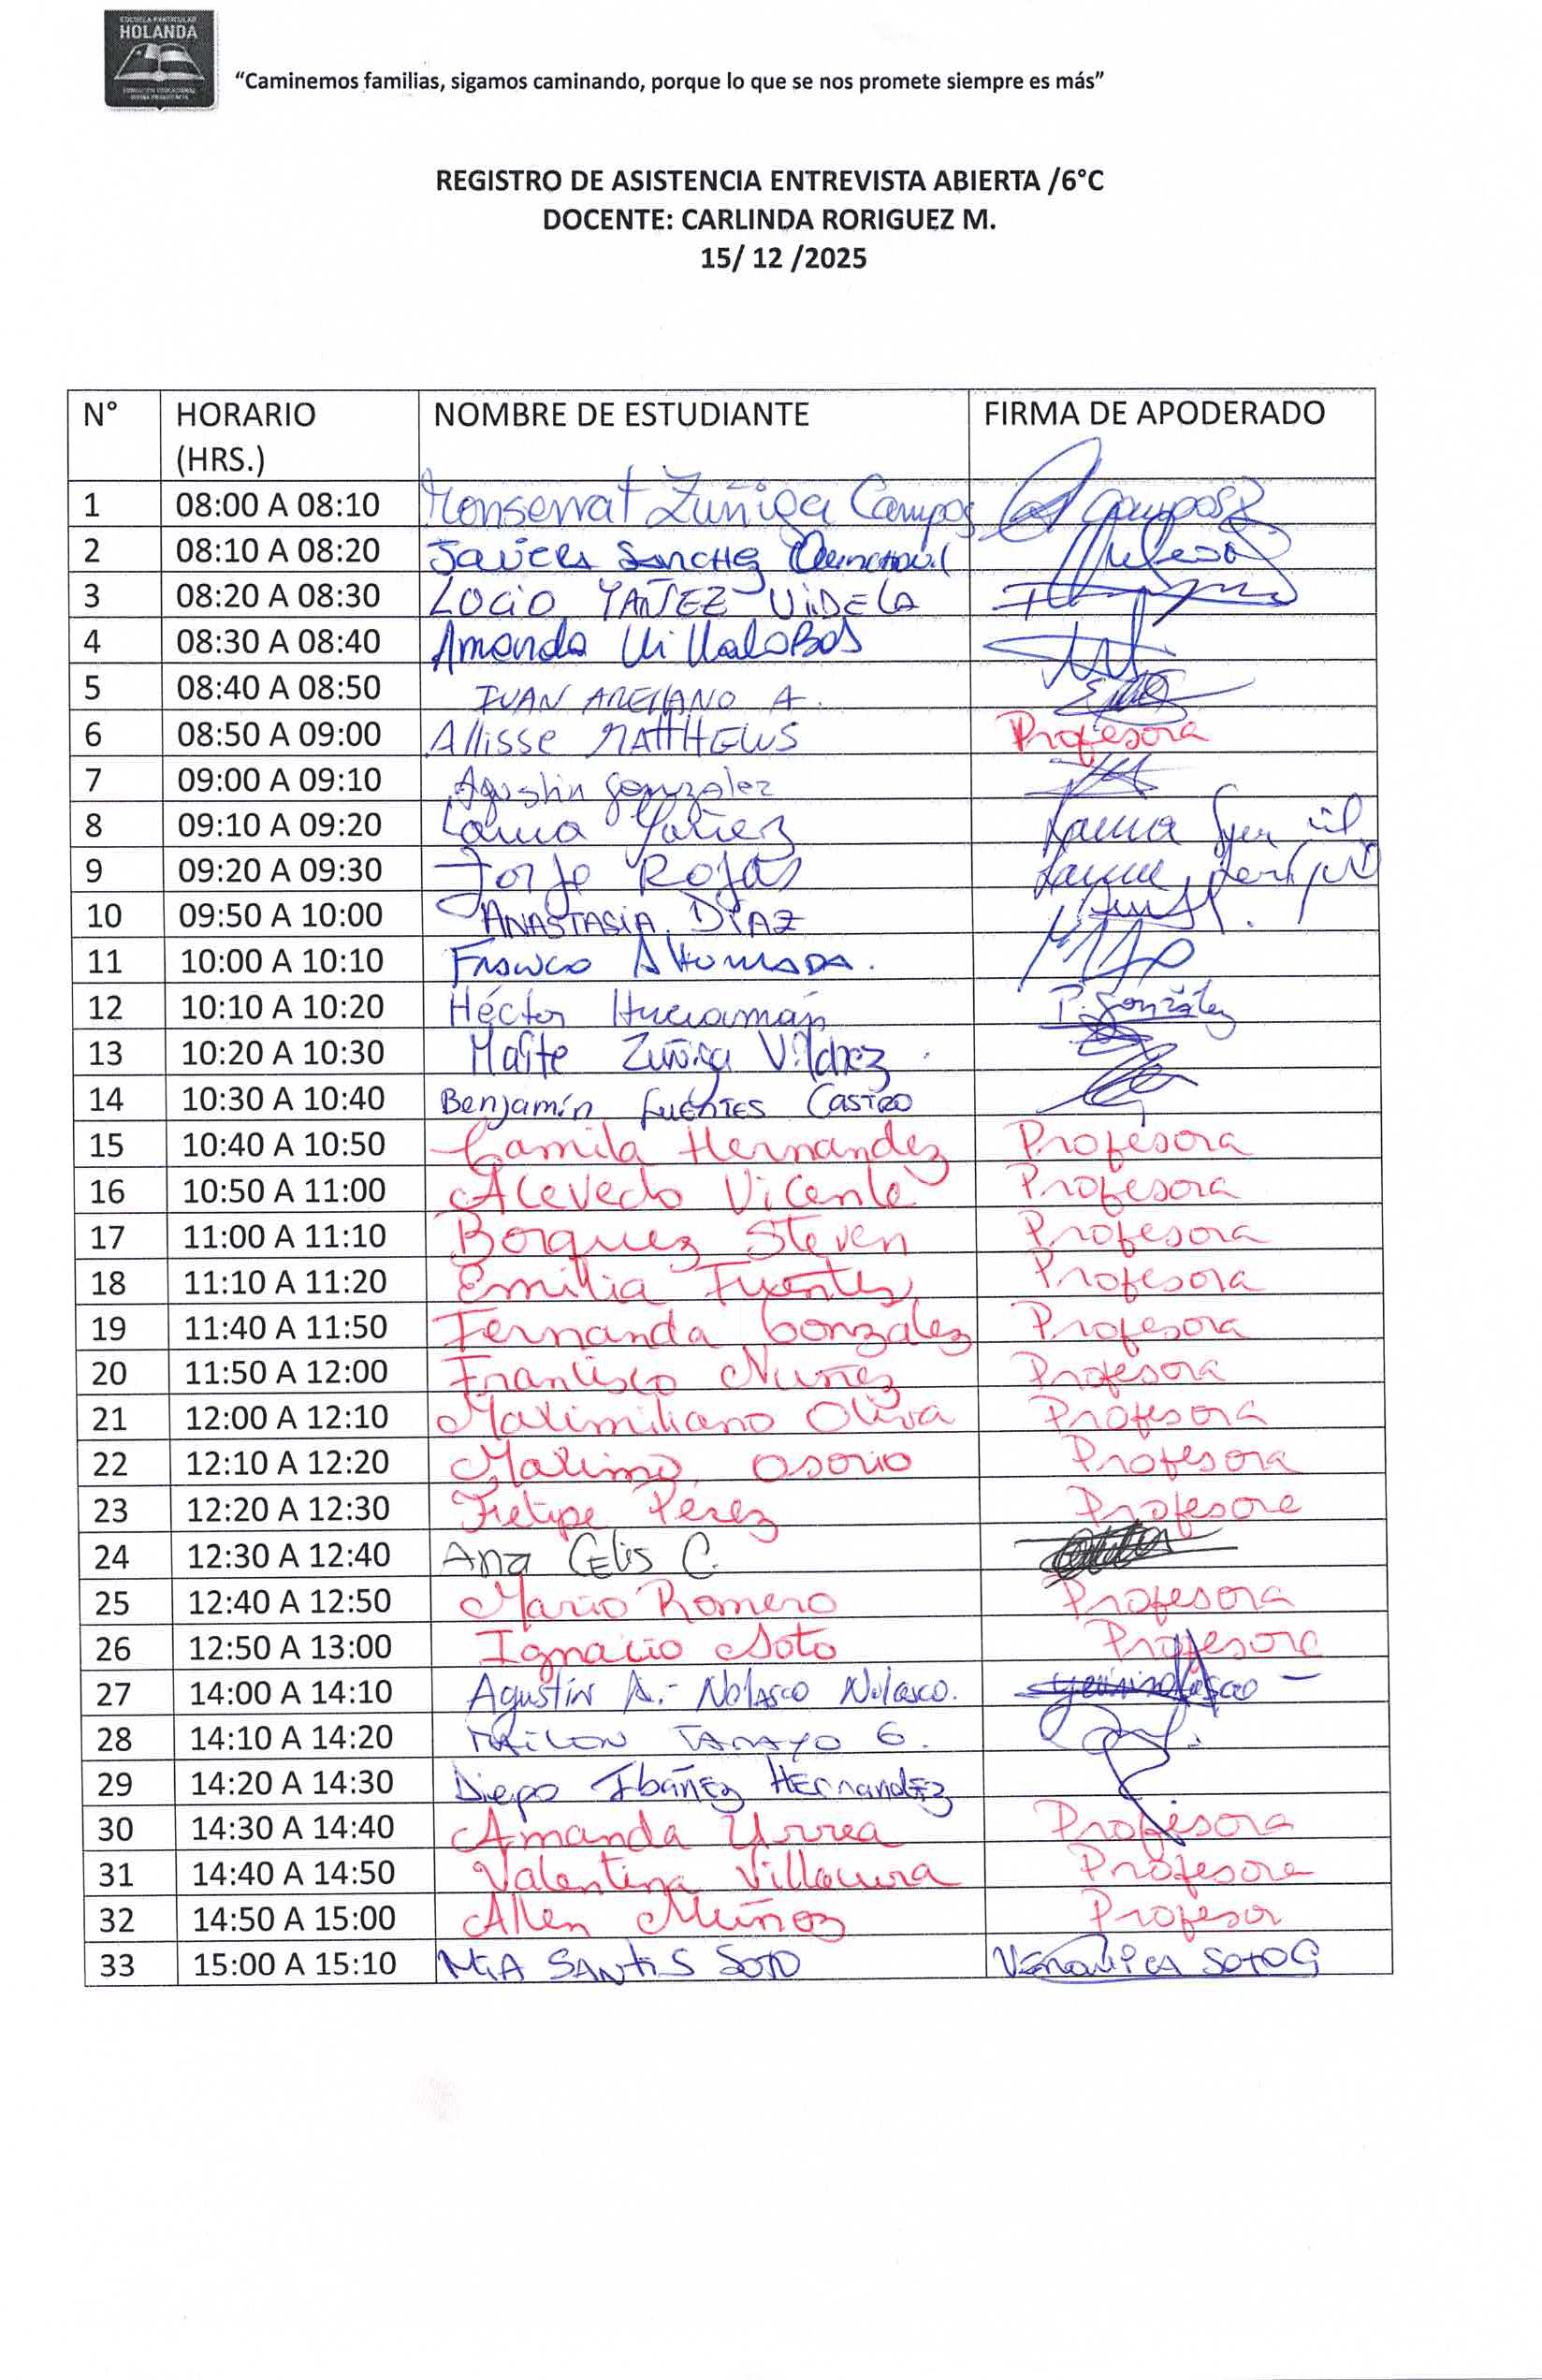 ESCUELA PARTICULAR
HOLANDA
"Caminemos familias, sigamos caminando, porque lo que se nos promete siempre es más"
REGISTRO DE ASISTENCIA ENTREVISTA ABIERTA /6°C
DOCENTE: CARLINDA RORIGUEZ M.
15/ 12 /2025
N° HORARIO (HRS.) NOMBRE DE ESTUDIANTE FIRMA DE APODERADO
1 08:00 A 08:10 Monserrat Zúñiga Campos
2 08:10 A 08:20 Javiera Sanchez
3 08:20 A 08:30 YAÑEZ VIDELA
4 08:30 A 08:40 Amanda VillaloBos
5 08:40 A 08:50 IVAN ARELLANO A.
6 08:50 A 09:00 Allisse MATTHEWS Profesora
7 09:00 A 09:10 Agustin Gonzalez
8 09:10 A 09:20 Yañez
9 09:20 A 09:30 Jorge Rojas
10 09:50 A 10:00 ANASTASIA DIAZ
11 10:00 A 10:10 Franco AHUMADA.
12 10:10 A 10:20 Héctor Huaiquimán P. González
13 10:20 A 10:30 Maite Zuñiga Vilchez
14 10:30 A 10:40 Benjamín FuENTES CASTRO
15 10:40 A 10:50 Camila Hernandez Profesora
16 10:50 A 11:00 Acevedo Vicente Profesora
17 11:00 A 11:10 Borquez Steven Profesora
18 11:10 A 11:20 Emilia Fuentes Profesora
19 11:40 A 11:50 Fernanda Gonzalez Profesora
20 11:50 A 12:00 Francisco Nuñez Profesora
21 12:00 A 12:10 Maximiliano Oliva Profesora
22 12:10 A 12:20 Maximo Osorio Profesora
23 12:20 A 12:30 Felipe Pérez Profesora
24 12:30 A 12:40 Ana CElis C.
25 12:40 A 12:50 Mario Romero Profesora
26 12:50 A 13:00 Ignacio Soto Profesora
27 14:00 A 14:10 Agustín A.- Nolasco Nolasco.
28 14:10 A 14:20 TAMAYO G.
29 14:20 A 14:30 Diego Ibáñez HErnandEz
30 14:30 A 14:40 Amanda Urrea Profesora
31 14:40 A 14:50 Valentina Villacura Profesora
32 14:50 A 15:00 Allen Muñoz Profesor
33 15:00 A 15:10 MIA SANtiS SOTO Veronica SOTO G